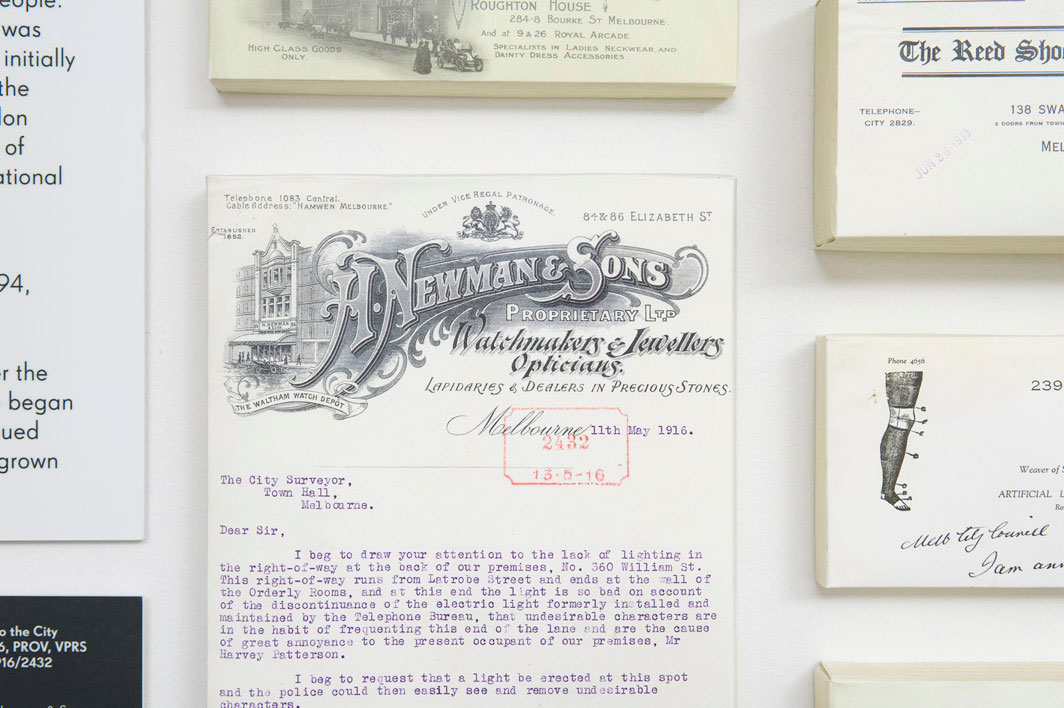 eople.
was
initially
the
lon
of
ational
94,
er the
began
ued
grown
o the City
6, PROV, VPRS
916/2432
Roughton House
284-8 Bourke St Melbourne.
And at 9 & 26 Royal Arcade
Specialists in Ladies Neckwear and
Dainty Dress Accessories.
High Class Goods
Only.
Telephone 1083 Central.
Cable Address: "NAMWEN MELBOURNE."
Under Vice Regal Patronage.
84 & 86 Elizabeth St
Established
1852.
H. Newman & Sons
Proprietary Ltd
Watchmakers & Jewellers
Opticians.
Lapidaries & Dealers in Precious Stones.
The Waltham Watch Depot
Melbourne 11th May 1916.
2432
13-5-16
The City Surveyor,
Town Hall,
Melbourne.
Dear Sir,
I beg to draw your attention to the lack of lighting in
the right-of-way at the back of our premises, No. 360 William St.
This right-of-way runs from Latrobe Street and ends at the wall of
the Orderly Rooms, and at this end the light is so bad on account
of the discontinuance of the electric light formerly installed and
maintained by the Telephone Bureau, that undesirable characters are
in the habit of frequenting this end of the lane and are the cause
of great annoyance to the present occupant of our premises, Mr
Harvey Patterson.
I beg to request that a light be erected at this spot
and the police could then easily see and remove undesirable
characters.
The Reed Sho
TELEPHONE—
CITY 2829.
138 SWA
3 DOORS FROM TOWN
MEL
JUN 26 1913
Phone 4656
239
Weaver of S
ARTIFICIAL L
Ro
Melb City Council
I am an